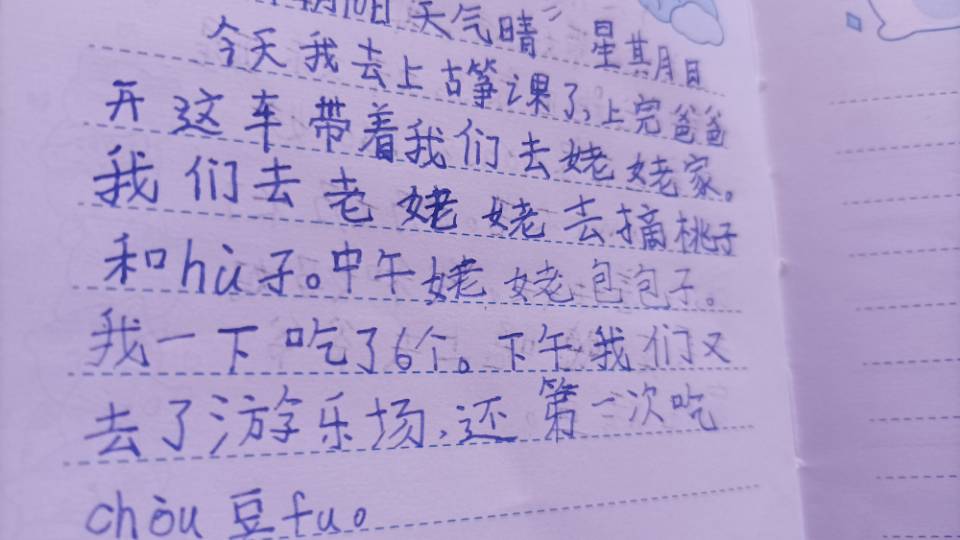 月10日 天气晴 星其月日
今天我去上古筝课了,上完爸爸
开这车带着我们去姥姥家。
我们去老姥姥去摘桃子
和hù子。中午姥姥包泡子。
我一下吃了6个。下午我们又
去了游乐场,还第一次吃
chòu豆fu。